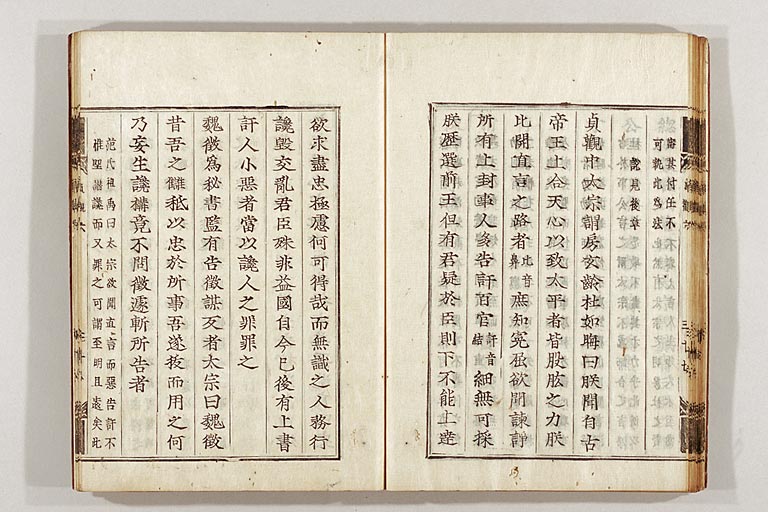 審其付任不
可執此爲法
說見後章
貞觀中太宗謂房玄齡杜如晦曰朕聞自古
帝王上合天心以致太平者皆股肱之力朕
比開直言之路者比音鼻庶知冤屈欲聞諫諍
所有上封事人多告訐百官訐音結細無可採
朕歷選前王但有君疑於臣則下不能上達
欲求盡忠極慮何可得哉而無識之人務行
讒毀交亂君臣殊非益國自今已後有上書
訐人小惡者當以讒人之罪罪之
魏徵爲秘書監有告徵謀反者太宗曰魏徵
昔吾之讎秪以忠於所事吾遂拔而用之何
乃妄生讒構竟不問徵遽斬所告者
范氏祖禹曰太宗欲聞直言而惡告訐不
惟聖讒而又罪之可謂至明且遠矣此